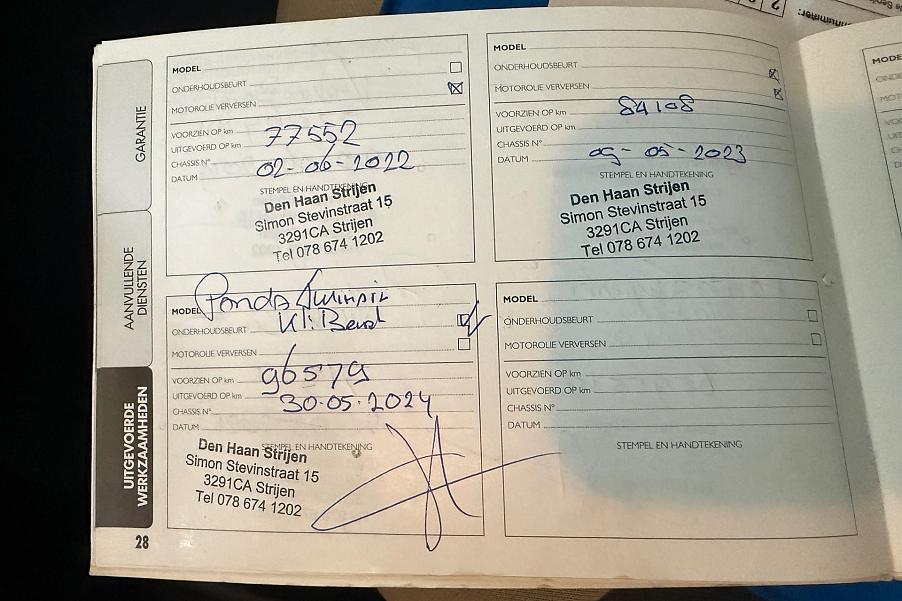 GARANTIE
AANVULLENDE
DIENSTEN
UITGEVOERDE
WERKZAAMHEDEN
28
MODEL
ONDERHOUDSBEURT
MOTOROLIE VERVERSEN
VOORZIEN OP km
77552
UITGEVOERD OP km
CHASSIS N°
02-06-2022
DATUM
STEMPEL EN HANDTEKENING
Den Haan Strijen
Simon Stevinstraat 15
3291CA Strijen
Tel 078 674 1202
MODEL
ONDERHOUDSBEURT
MOTOROLIE VERVERSEN
VOORZIEN OP km
84108
UITGEVOERD OP km
CHASSIS N°
DATUM
09-05-2023
STEMPEL EN HANDTEKENING
Den Haan Strijen
Simon Stevinstraat 15
3291CA Strijen
Tel 078 674 1202
MODEL
Panda
ONDERHOUDSBEURT
Kl. Beurt
MOTOROLIE VERVERSEN
VOORZIEN OP km
96579
UITGEVOERD OP km
30.05.2024
CHASSIS N°
DATUM
STEMPEL EN HANDTEKENING
Den Haan Strijen
Simon Stevinstraat 15
3291CA Strijen
Tel 078 674 1202
MODEL
ONDERHOUDSBEURT
MOTOROLIE VERVERSEN
VOORZIEN OP km
UITGEVOERD OP km
CHASSIS N°
DATUM
STEMPEL EN HANDTEKENING